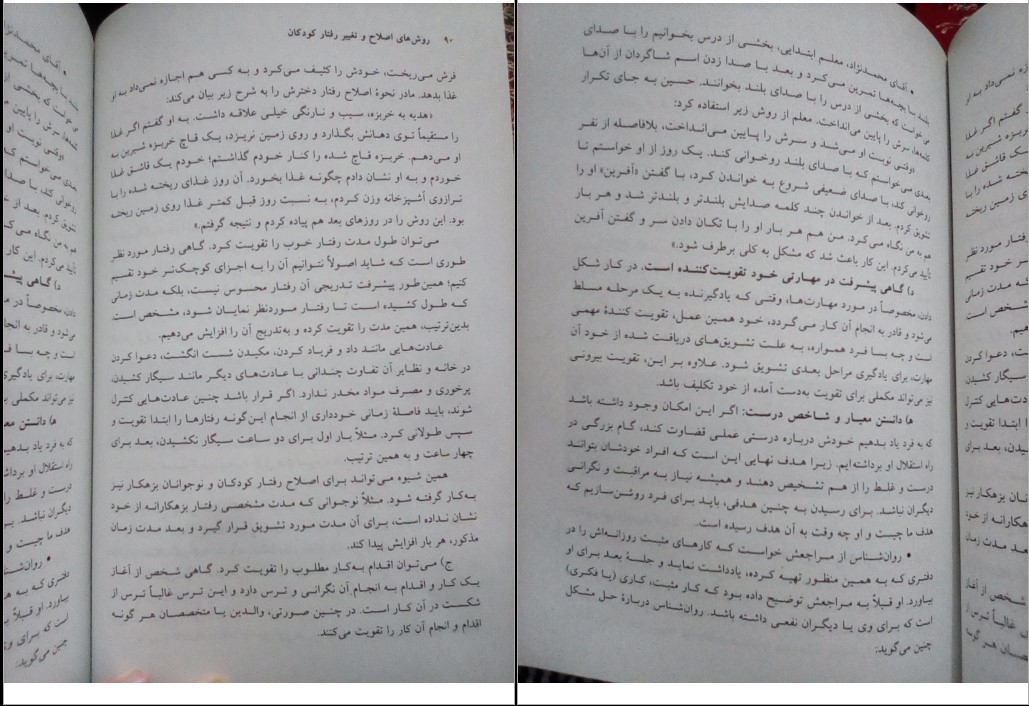 ۹۰ روش‌های اصلاح و تغییر رفتار کودکان
فرش می‌ریخت، خودش را کثیف می‌کرد و به کسی هم اجازه نمی‌داد به او
غذا بدهد. مادر نحوهٔ اصلاح رفتار دخترش را به شرح زیر بیان می‌کند:
«هدیه به خربزه، سیب و نارنگی خیلی علاقه داشت. به او گفتم اگر غذا
را مستقیماً توی دهانش بگذارد و روی زمین نریزد، یک قاچ خربزه شیرین به
او می‌دهم. خربزه قاچ شده را کنار خودم گذاشتم؛ خودم یک قاشق غذا
خوردم و به او نشان دادم چگونه غذا بخورد. آن روز غذای ریخته شده را با
ترازوی آشپزخانه وزن کردم، به نسبت روز قبل کمتر غذا روی زمین ریخته
بود. این روش را در روزهای بعد هم پیاده کردم و نتیجه گرفتم.»
می‌توان طول مدت رفتار خوب را تقویت کرد. گاهی رفتار مورد نظر
طوری است که شاید اصولاً نتوانیم آن را به اجزای کوچک‌تر خود تقسیم
کنیم؛ همین‌طور پیشرفت تدریجی آن رفتار محسوس نیست، بلکه مدت زمانی
که طول کشیده است تا رفتار موردنظر نمایان شود، مشخص است.
بدین‌ترتیب، همین مدت را تقویت کرده و به‌تدریج آن را افزایش می‌دهیم.
عادت‌هایی مانند داد و فریاد کردن، مکیدن شست انگشت، دعوا کردن
در خانه و نظایر آن تفاوت چندانی با عادت‌های دیگر مانند سیگار کشیدن،
پرخوری و مصرف مواد مخدر ندارد. اگر قرار باشد چنین عادت‌هایی کنترل
شوند، باید فاصلهٔ زمانی خودداری از انجام این‌گونه رفتارها را ابتدا تقویت و
سپس طولانی کرد. مثلاً بار اول برای دو ساعت سیگار نکشیدن، بعد برای
چهار ساعت و به همین ترتیب.
همین شیوه می‌تواند برای اصلاح رفتار کودکان و نوجوانان بزهکار نیز
به‌کار گرفته شود. مثلاً نوجوانی که مدت مشخصی رفتار بزهکارانه از خود
نشان نداده است، برای آن مدت مورد تشویق قرار گیرد و بعد مدت زمان
مذکور، هر بار افزایش پیدا کند.
ج) می‌توان اقدام به‌کار مطلوب را تقویت کرد. گاهی شخص از آغاز
یک کار و اقدام به انجام آن نگرانی و ترس دارد و این ترس غالباً ترس از
شکست در آن کار است. در چنین صورتی، والدین یا متخصصان هر گونه
اقدام و انجام آن کار را تقویت می‌کنند.
• آقای محمدنژاد، معلم ابتدایی، بخشی از درس بخوانیم را با صدای
بلند با بچه‌ها تمرین می‌کرد و بعد با صدا زدن اسم شاگردان از آن‌ها
می خواست که بخشی از درس را با صدای بلند بخوانند. حسین به جای تکرار
کلمه‌ها، سرش را پایین می‌انداخت. معلم از روش زیر استفاده کرد:
«وقتی نوبت او می‌شد و سرش را پایین می‌انداخت، بلافاصله از نفر
بعدی می‌خواستم که با صدای بلند روخوانی کند. یک روز از او خواستم تا
روخوانی کند، با صدای ضعیفی شروع به خواندن کرد، با گفتن «آفرین» او را
تشویق کردم. بعد از خواندن چند کلمه صدایش بلندتر و بلندتر شد و هر بار
هم به من نگاه می‌کرد. من هم هر بار او را با تکان دادن سر و گفتن آفرین
تأیید می‌کردم. این کار باعث شد که مشکل به کلی برطرف شود.»
د) گاهی پیشرفت در مهارتی خود تقویت‌کننده است. در کار شکل
دادن، مخصوصاً در مورد مهارت‌ها، وقتی که یادگیرنده به یک مرحله مسلط
می‌شود و قادر به انجام آن کار می‌گردد، خود همین عمل، تقویت کنندهٔ مهمی
است و چه بسا فرد همواره، به علت تشویق‌های دریافت شده از خود آن
مهارت، برای یادگیری مراحل بعدی تشویق شود. علاوه بر این، تقویت بیرونی
نیز می‌تواند مکملی برای تقویت به‌دست آمده از خود تکلیف باشد.
ه‍) دانستن معیار و شاخص درست: اگر این امکان وجود داشته باشد
که به فرد یاد بدهیم خودش درباره درستی عملی قضاوت کند، گام بزرگی در
راه استقلال او برداشته‌ایم. زیرا هدف نهایی این است که افراد خودشان بتوانند
درست و غلط را از هم تشخیص دهند و همیشه نیاز به مراقبت و نگرانی
دیگران نباشد. برای رسیدن به چنین هدفی، باید برای فرد روشن‌سازیم که
هدف ما چیست و او چه وقت به آن هدف رسیده است.
• روان‌شناس از مراجعش خواست که کارهای مثبت روزانه‌اش را در
دفتری که به همین منظور تهیه کرده، یادداشت نماید و جلسهٔ بعد برای او
بیاورد. او قبلاً به مراجعش توضیح داده بود که کار مثبت، کاری (یا فکری)
است که برای وی یا دیگران نفعی داشته باشد. روان‌شناس دربارهٔ حل مشکل
چنین می‌گوید: